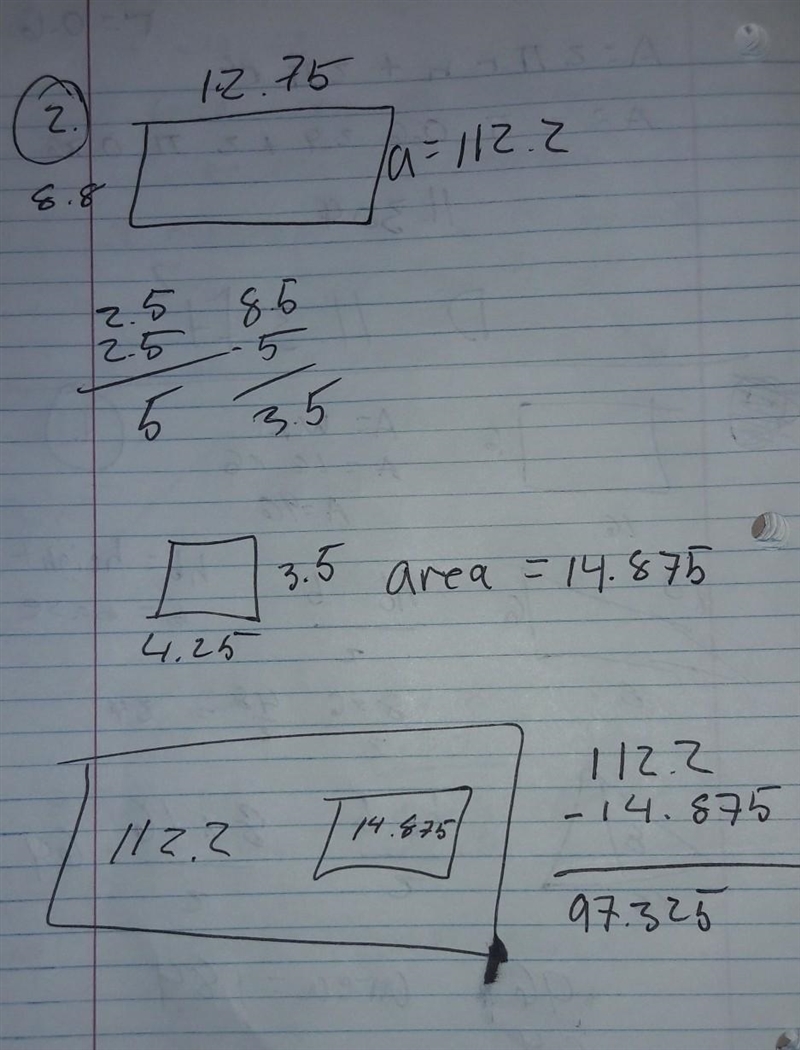 12.75
2.
a=112.2
8.8
2.5 8.5
2.5 - 5
5 3.5
3.5 area = 14.875
4.25
112.2
112.2 14.875 -14.875
97.325